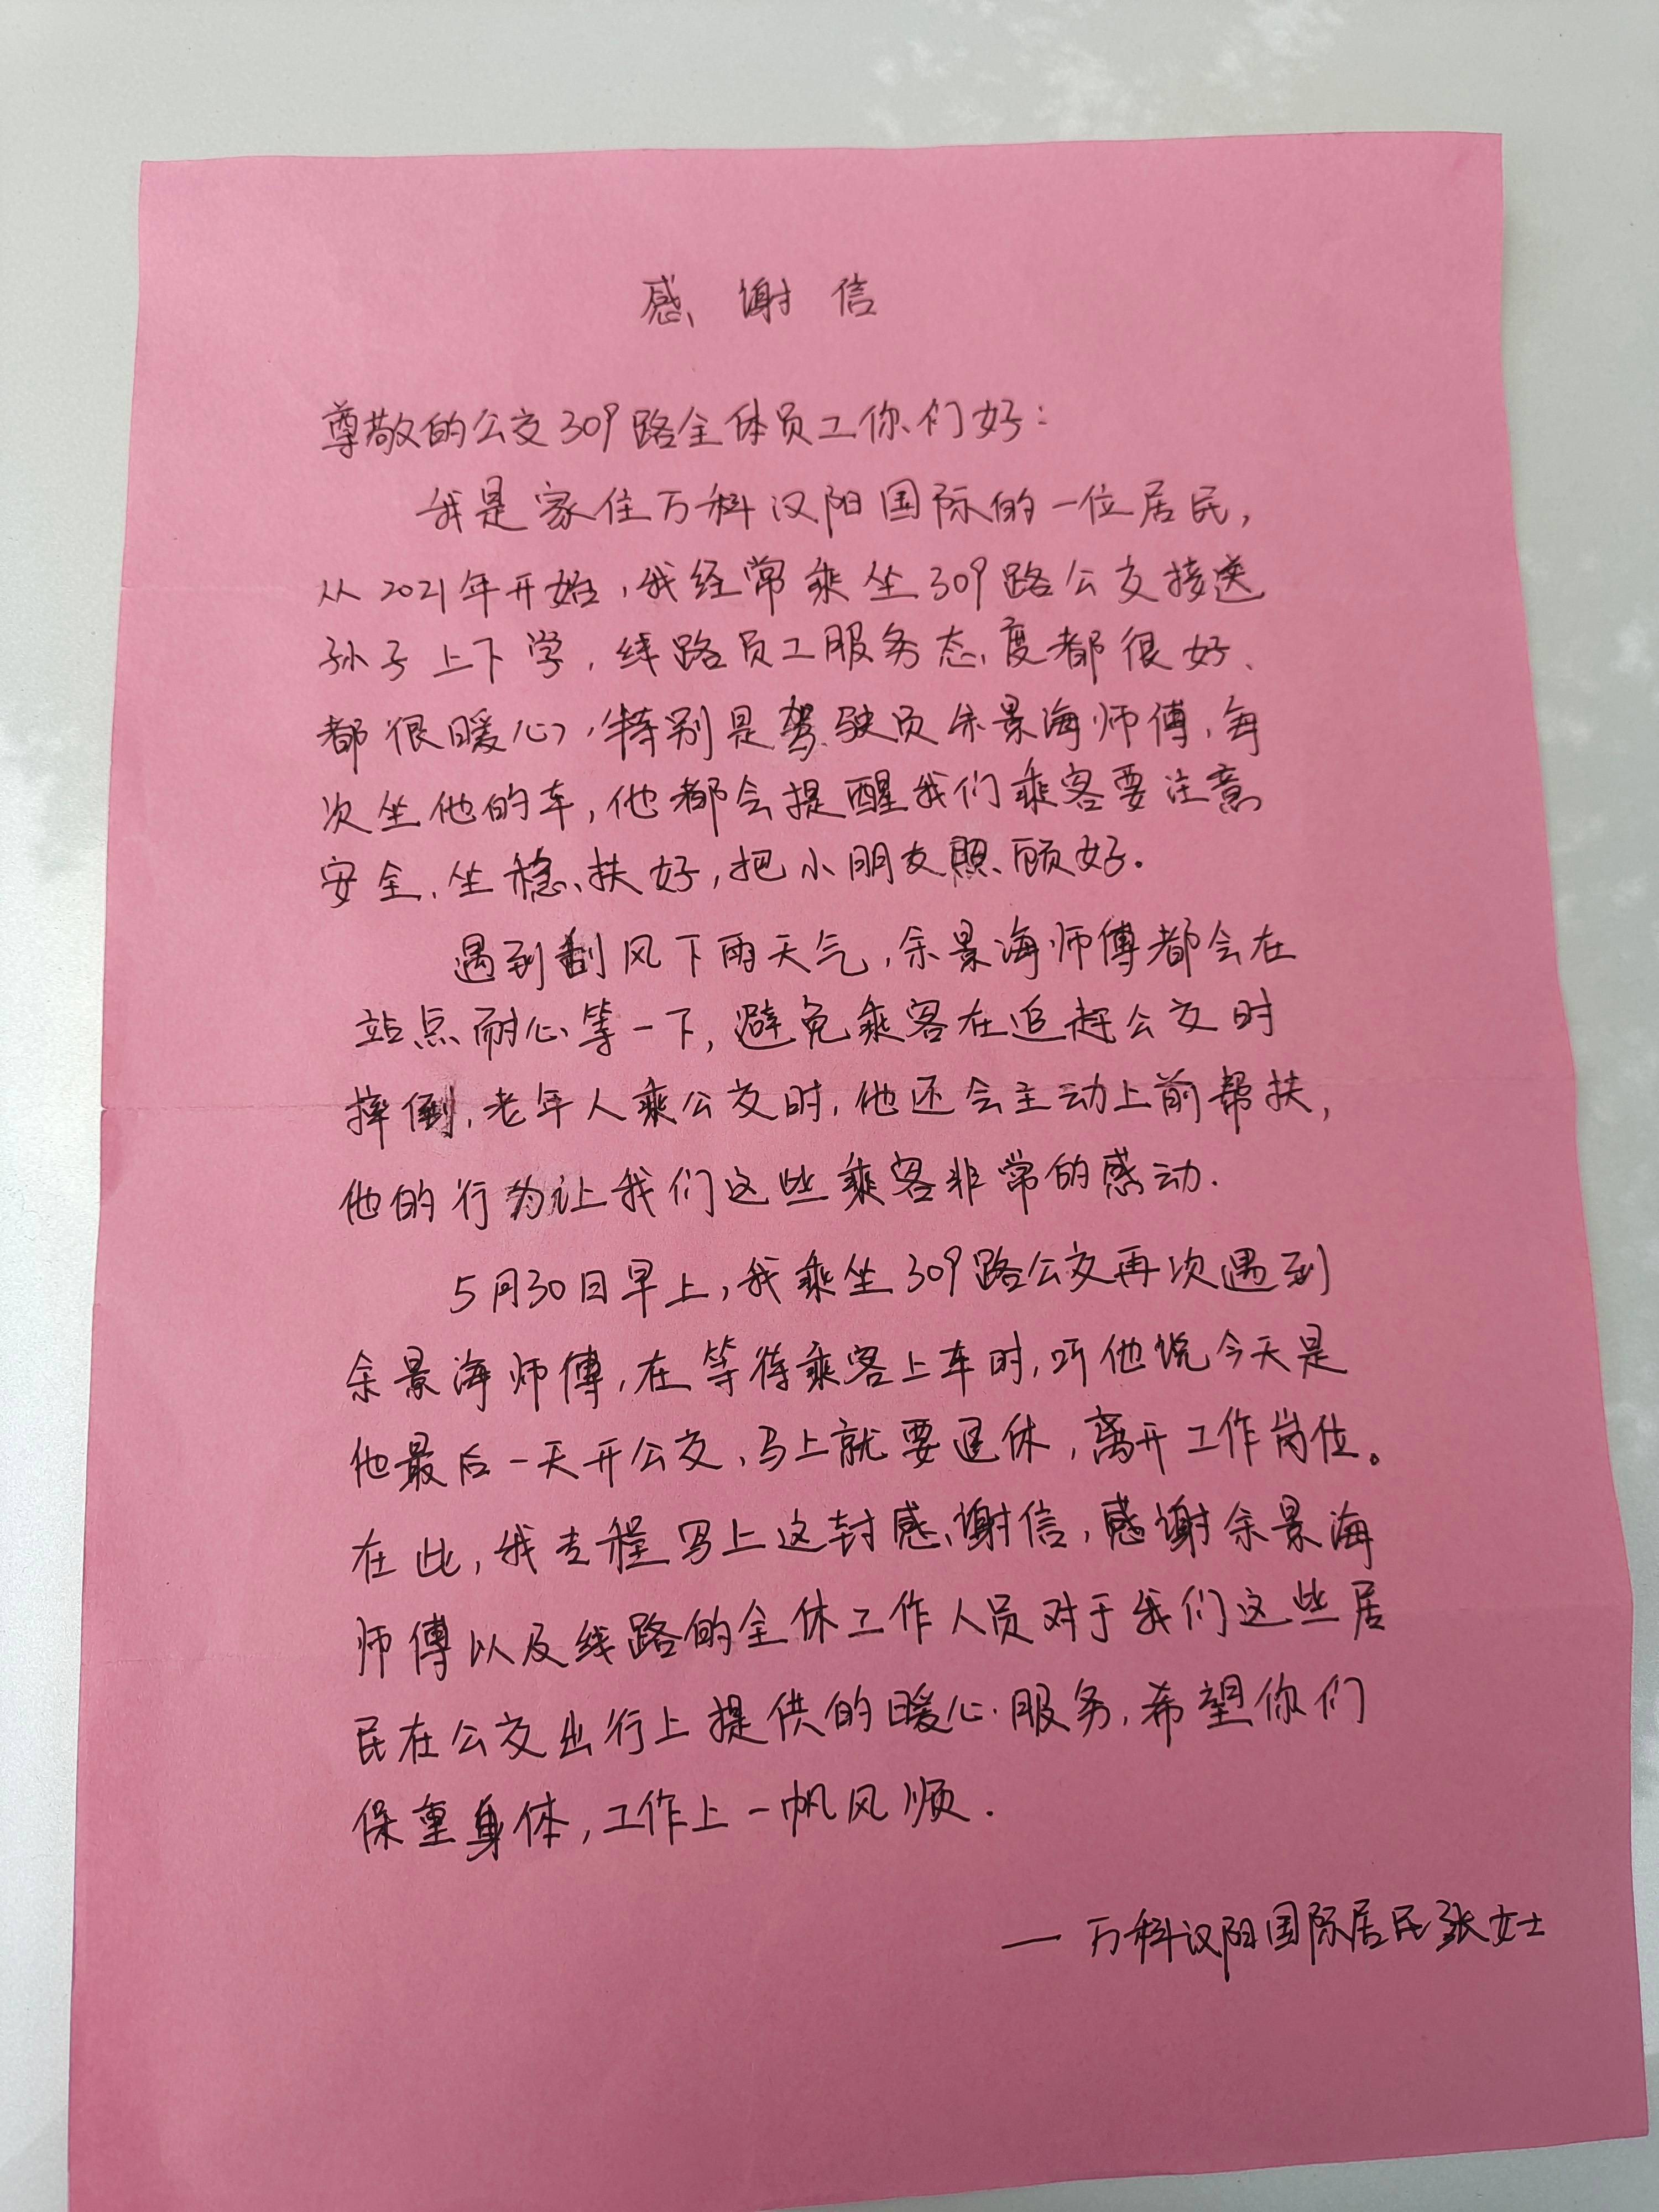 感谢信
尊敬的公交309路全体员工你们好：
我是家住万科汉阳国际的一位居民，
从2021年开始，我经常乘坐309路公交接送
孙子上下学，线路员工服务态度都很好、
都很暖心，特别是驾驶员余景海师傅，每
次坐他的车，他都会提醒我们乘客要注意
安全、坐稳、扶好，把小朋友照顾好。
遇到刮风下雨天气，余景海师傅都会在
站点耐心等一下，避免乘客在追赶公交时
摔倒，老年人乘公交时，他还会主动上前帮扶，
他的行为让我们这些乘客非常的感动.
5月30日早上，我乘坐309路公交再次遇到
余景海师傅，在等待乘客上车时，听他说今天是
他最后一天开公交，马上就要退休，离开工作岗位。
在此，我专程写上这封感谢信，感谢余景海
师傅以及线路的全体工作人员对于我们这些居
民在公交出行上提供的暖心服务，希望你们
保重身体，工作上一帆风顺.
一万科汉阳国际居民张女士